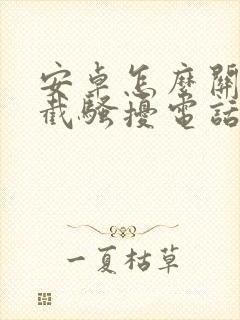 安卓怎麼開
截騷擾電話
一夏枯草